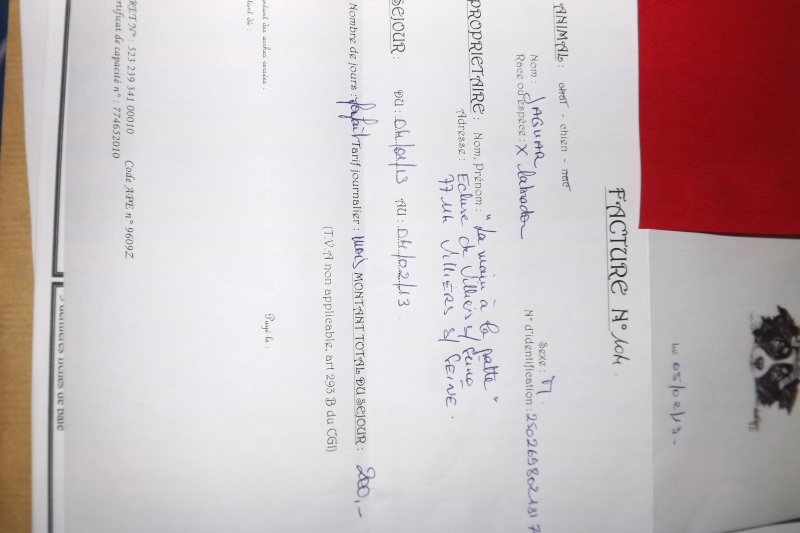 le 05/02/13 -
FACTURE N° 104.
ANIMAL : chat - chien - nac
Nom : JAGUAR Sexe : M.
Race ou espèce : X labrador N° d'identification : 2502698021317
PROPRIETAIRE : Nom, Prénom : "La main à la patte"
Adresse : Ecluse de Villiers s/ Seine
77114 VILLIERS s/ SEINE.
SEJOUR : DU : 04/01/13 AU : 04/02/13.
Nombre de jours : forfait Tarif journalier : mois MONTANT TOTAL DU SEJOUR : 200,-
(T.V.A non applicable, art 293 B du CGI)
Payé le :
RET N° : 523 239 341 00010 Code APE n° 9609Z
certificat de capacité n° : 774652010
3 dernières fiches de paie